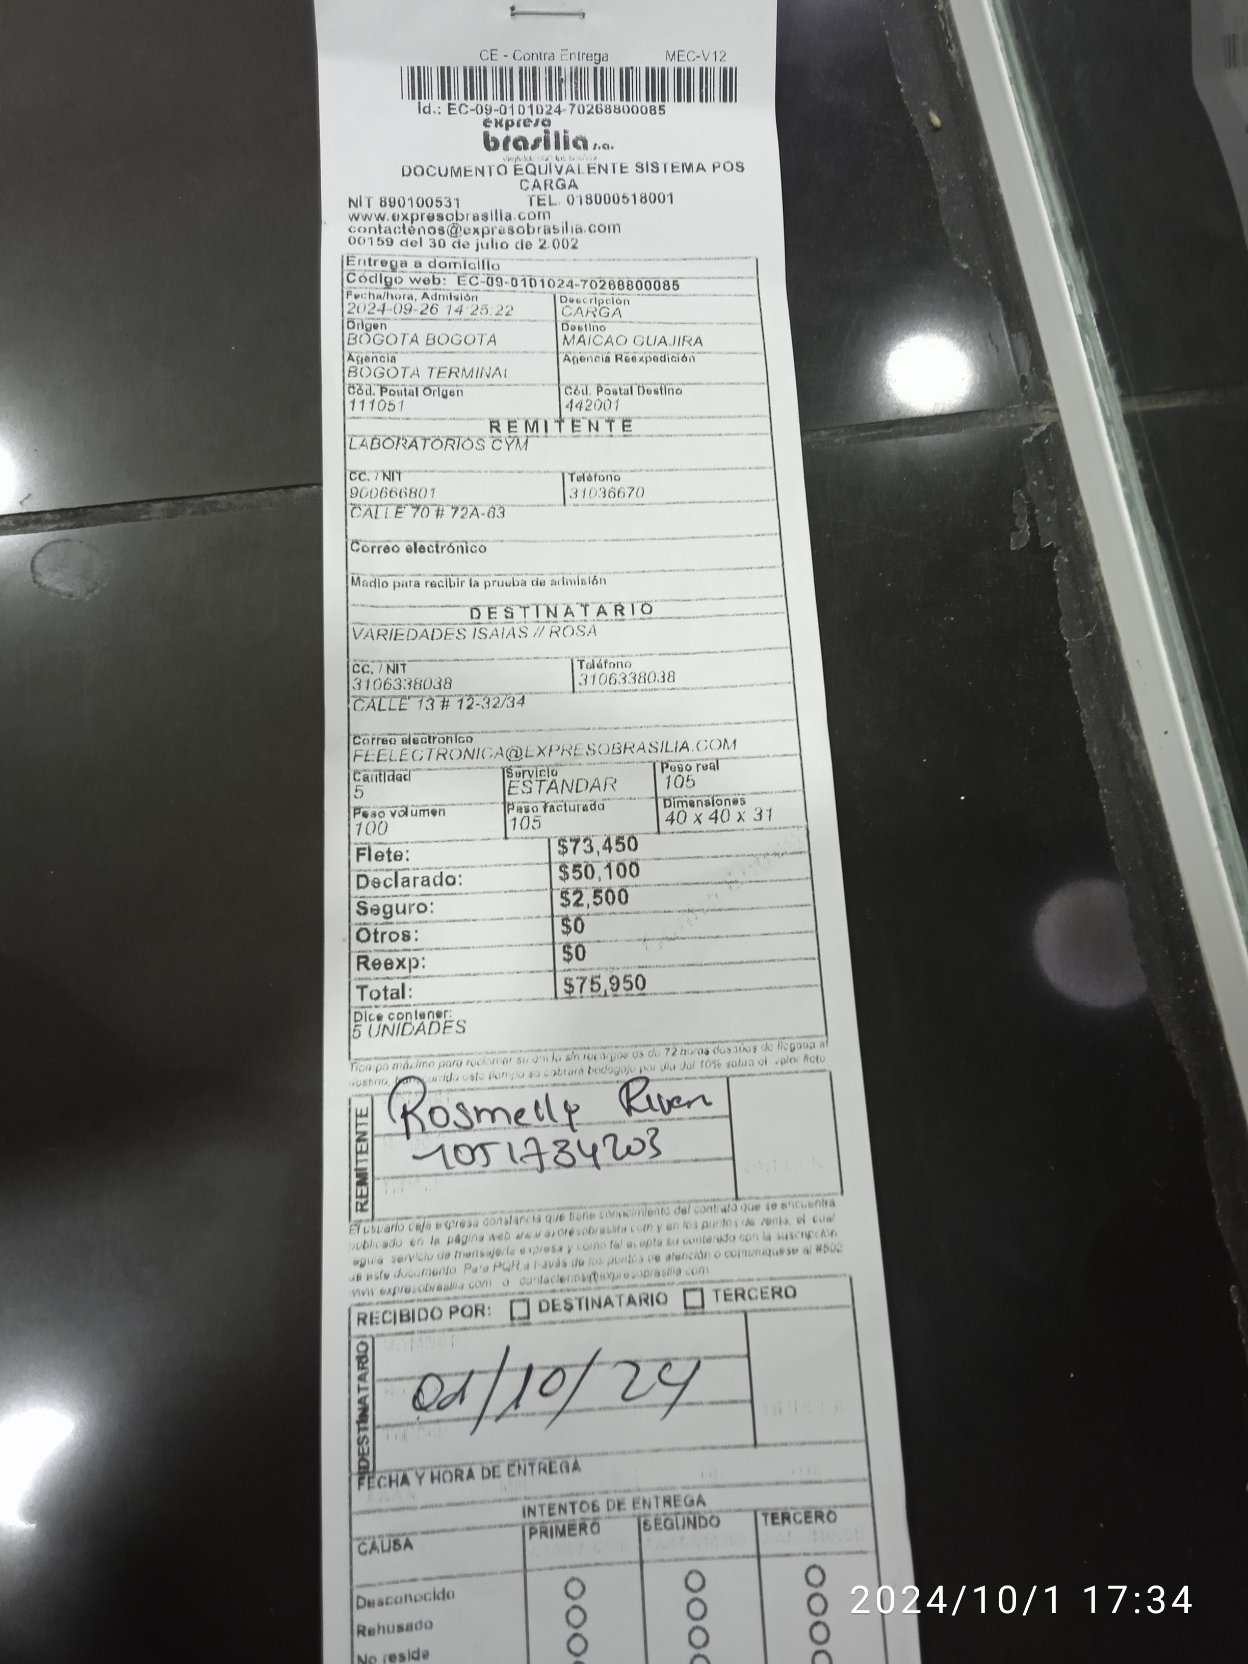 CE - Contra Entrega MEC-V12
Id.: EC-09-0101024-70268800085
expreso
brasilia s.a.
DOCUMENTO EQUIVALENTE SISTEMA POS
CARGA
NIT 890100531 TEL. 018000518001
www.expresobrasilia.com
contactenos@expresobrasilia.com
00159 del 30 de julio de 2.002
Entrega a domicilio
Código web: EC-09-0101024-70268800085
Fecha/hora, Admisión Descripción
2024-09-26 14:25:22 CARGA
Origen Destino
BOGOTA BOGOTA MAICAO GUAJIRA
Agencia Agencia Reexpedición
BOGOTA TERMINAL
Cód. Postal Origen Cód. Postal Destino
111051 442001
REMITENTE
LABORATORIOS CYM
CC. / NIT Teléfono
900666801 31036670
CALLE 70 # 72A-63
Correo electrónico
Medio para recibir la prueba de admisión
DESTINATARIO
VARIEDADES ISAIAS // ROSA
CC. / NIT Teléfono
3106338038 3106338038
CALLE 13 # 12-32/34
Correo electronico
FEELECTRONICA@EXPRESOBRASILIA.COM
Cantidad Servicio Peso real
5 ESTANDAR 105
Peso volumen Peso facturado Dimensiones
100 105 40 x 40 x 31
Flete: $73,450
Declarado: $50,100
Seguro: $2,500
Otros: $0
Reexp: $0
Total: $75,950
Dice contener:
5 UNIDADES
Tiempo máximo para reclamar su guía sin recargos es de 72 horas después de llegada al
destino, este tiempo se cobrará bodegaje por día del 10% sobre el valor flete
REMITENTE
Rosmelly
1051734203
El usuario deja expresa constancia que tiene conocimiento del contrato que se encuentra
publicado en la página web www.expresobrasilia.com y en los puntos de venta, el cual
servicio de mensajería expresa y como tal acepta su contenido con la suscripción
de este documento. Para PQR a través de los puntos de atención o comuníquese al #502
www.expresobrasilia.com o contactenos@expresobrasilia.com
RECIBIDO POR: DESTINATARIO TERCERO
DESTINATARIO
01/10/24
FECHA Y HORA DE ENTREGA
INTENTOS DE ENTREGA
CAUSA PRIMERO SEGUNDO TERCERO
Desconocido
Rehusado
No reside
2024/10/1 17:34